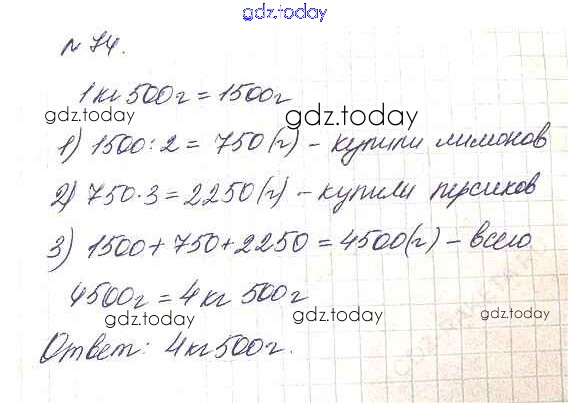 gdz.today
№ 74.
1 кг 500 г = 1500 г
gdz.today gdz.today
1) 1500 : 2 = 750 (г) – купили лимонов
2) 750 · 3 = 2250 (г) – купили персиков
3) 1500 + 750 + 2250 = 4500 (г) – всего
4500 г = 4 кг 500 г
gdz.today gdz.today gdz.today
Ответ: 4 кг 500 г.